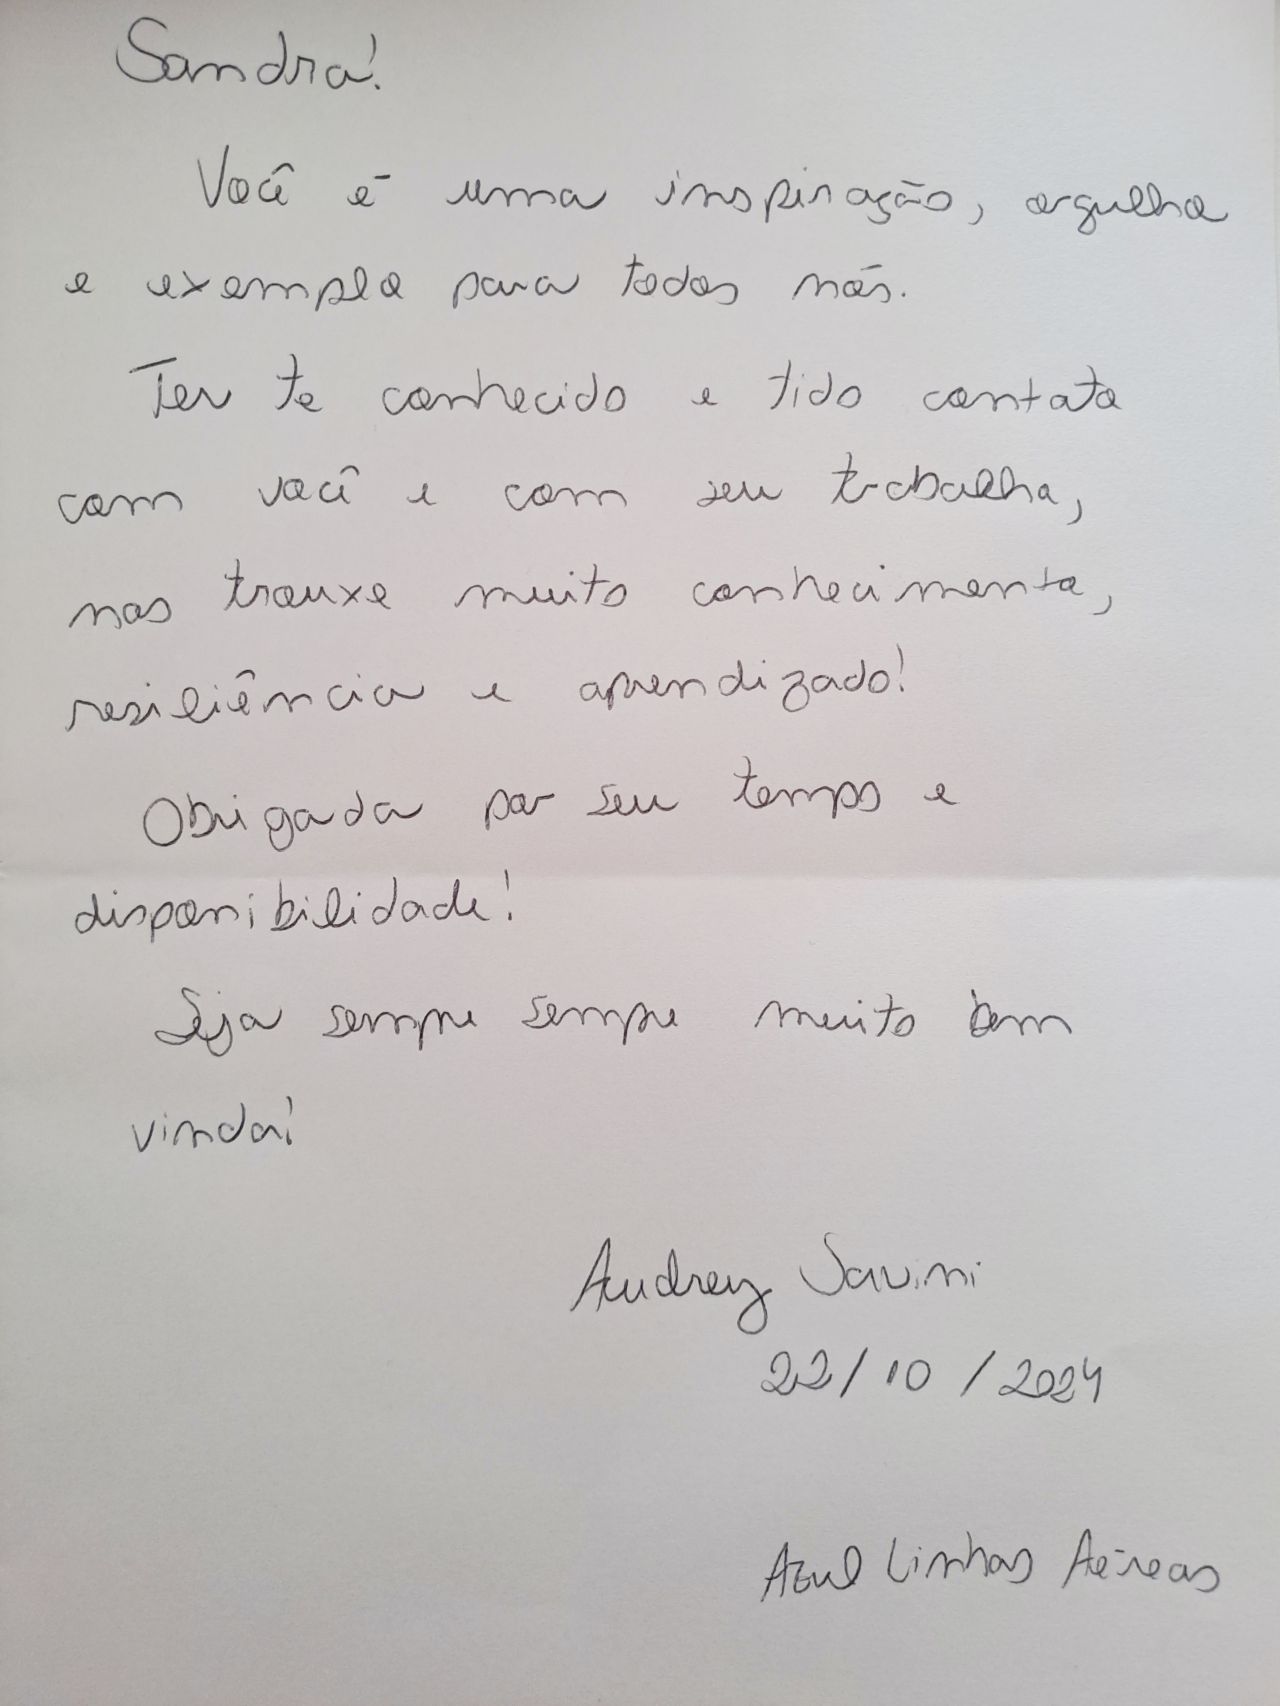 Sandra!
Você é uma inspiração, orgulho
e exemplo para todos nós.
Ter te conhecido e tido contato
com você e com seu trabalho,
nos trouxe muito conhecimento,
resiliência e aprendizado!
Obrigada por seu tempo e
disponibilidade!
Seja sempre sempre muito bem
vinda!
Audrey Savini
22/10/2024
Azul Linhas Aéreas